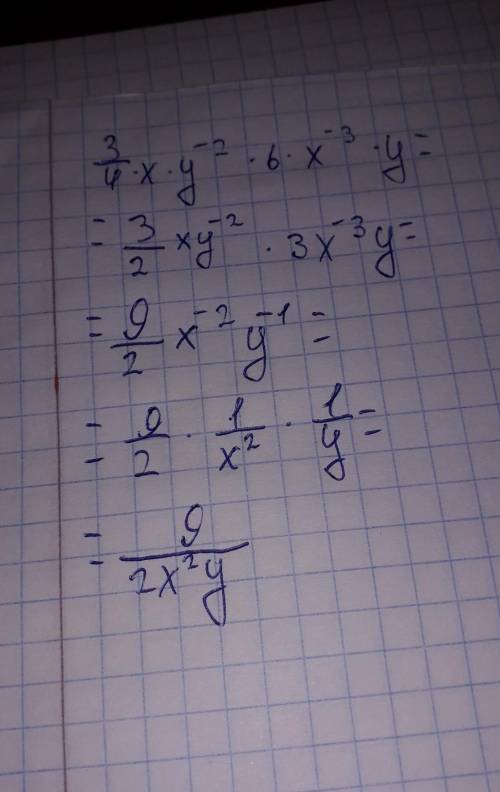 3/4 · x · y⁻² · 6 · x⁻³ · y =
= 3/2 xy⁻² · 3x⁻³y =
= 9/2 x⁻² y⁻¹ =
= 9/2 · 1/x² · 1/y =
= 9/2x²y